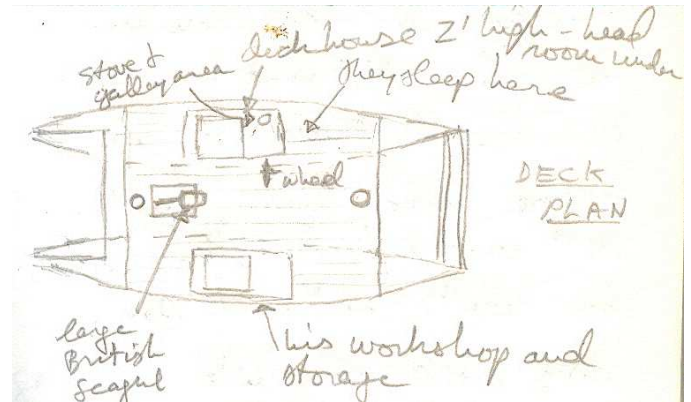 deckhouse 2' high - head
room under
stove &
galley area
they sleep here
wheel
DECK
PLAN
large
British
Seagul
his workshop and
storage